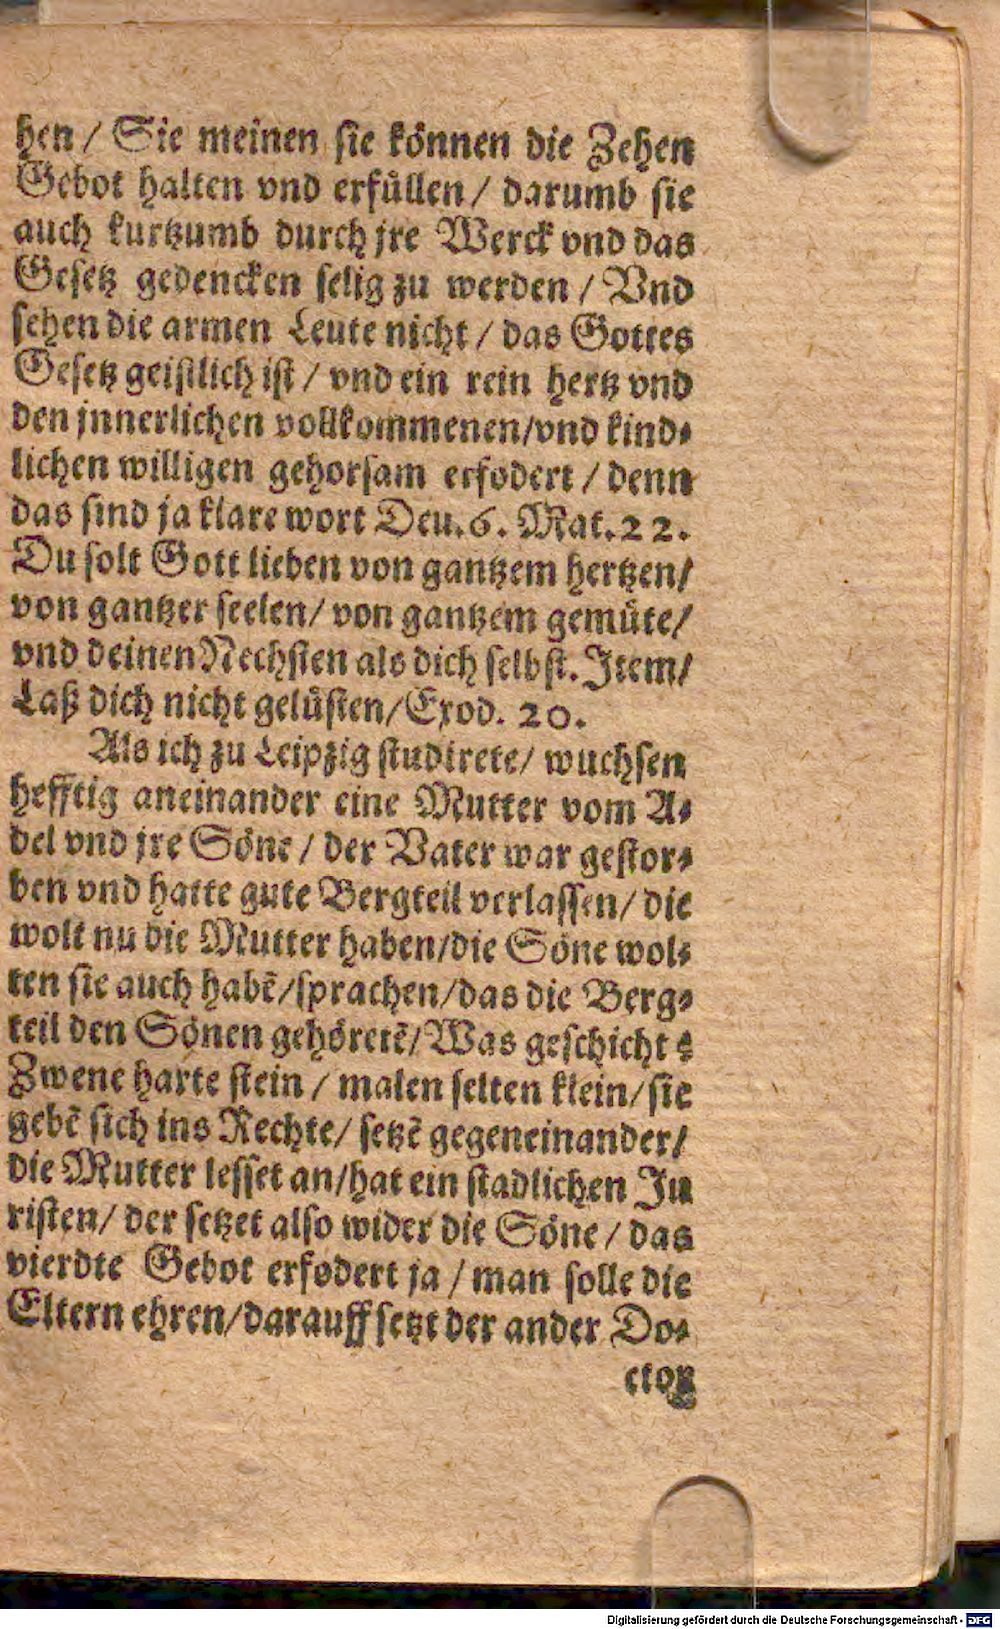 hen / Sie meinen sie können die Zehen
Gebot halten vnd erfüllen / darumb sie
auch kurtzumb durch jre Werck vnd das
Gesetz gedencken selig zu werden / Vnd
sehen die armen Leute nicht / das Gottes
Gesetz geistlich ist / vnd ein rein hertz vnd
den jnnerlichen vollkommenen/vnd kind⸗
lichen willigen gehorsam erfodert / denn
das sind ja klare wort Deu. 6. Mat. 22.
Du solt Gott lieben von gantzem hertzen/
von gantzer seelen/ von gantzem gemüte/
vnd deinen Nechsten als dich selbst. Item/
Laß dich nicht gelüsten/Exod. 20.
Als ich zu Leipzig studirete/ wuchsen
hefftig aneinander eine Mutter vom A⸗
del vnd jre Söne / der Vater war gestor⸗
ben vnd hatte gute Bergteil verlassen/ die
wolt nu die Mutter haben/die Söne wol⸗
ten sie auch habē/sprachen/das die Berg⸗
teil den Sönen gehöretē/Was geschicht?
Zwene harte stein / malen selten klein/sie
gebē sich ins Rechte/ setzē gegeneinander/
die Mutter lesset an/hat ein stadlichen Ju
risten/ der setzet also wider die Söne / das
vierdte Gebot erfodert ja / man solle die
Eltern ehren/darauff setzt der ander Do⸗
ctor
Digitalisierung gefördert durch die Deutsche Forschungsgemeinschaft - DFG